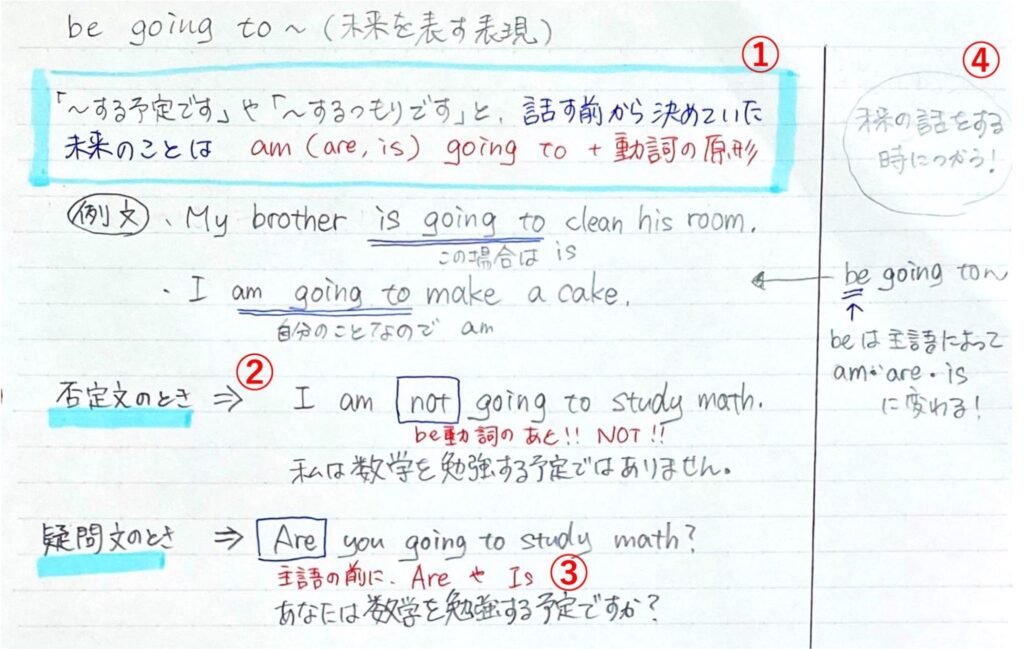 be going to ~ (未来を表す表現)
①
「〜する予定です」や「〜するつもりです」と、話す前から決めていた
未来のことは am (are, is) going to + 動詞の原形
例文 ・My brother is going to clean his room.
この場合は is
・I am going to make a cake.
自分のことなので am
否定文のとき ⇒ ② I am not going to study math.
be動詞の あと!! NOT!!
私は数学を勉強する予定ではありません。
疑問文のとき ⇒ Are you going to study math?
主語の前に、Are や Is ③
あなたは数学を勉強する予定ですか?
④
未来の話をする
時につかう!
← be going to~
↑
beは主語によって
am・are・is
に変わる!